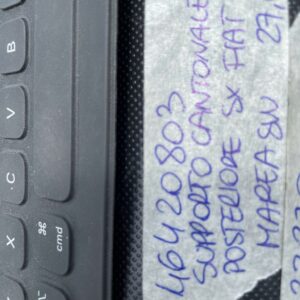 46420803
SUPPORTO CANTONALE
POSTERIORE SX FIAT
MAREA SW 27,
B
V
C
X
⌘
cmd